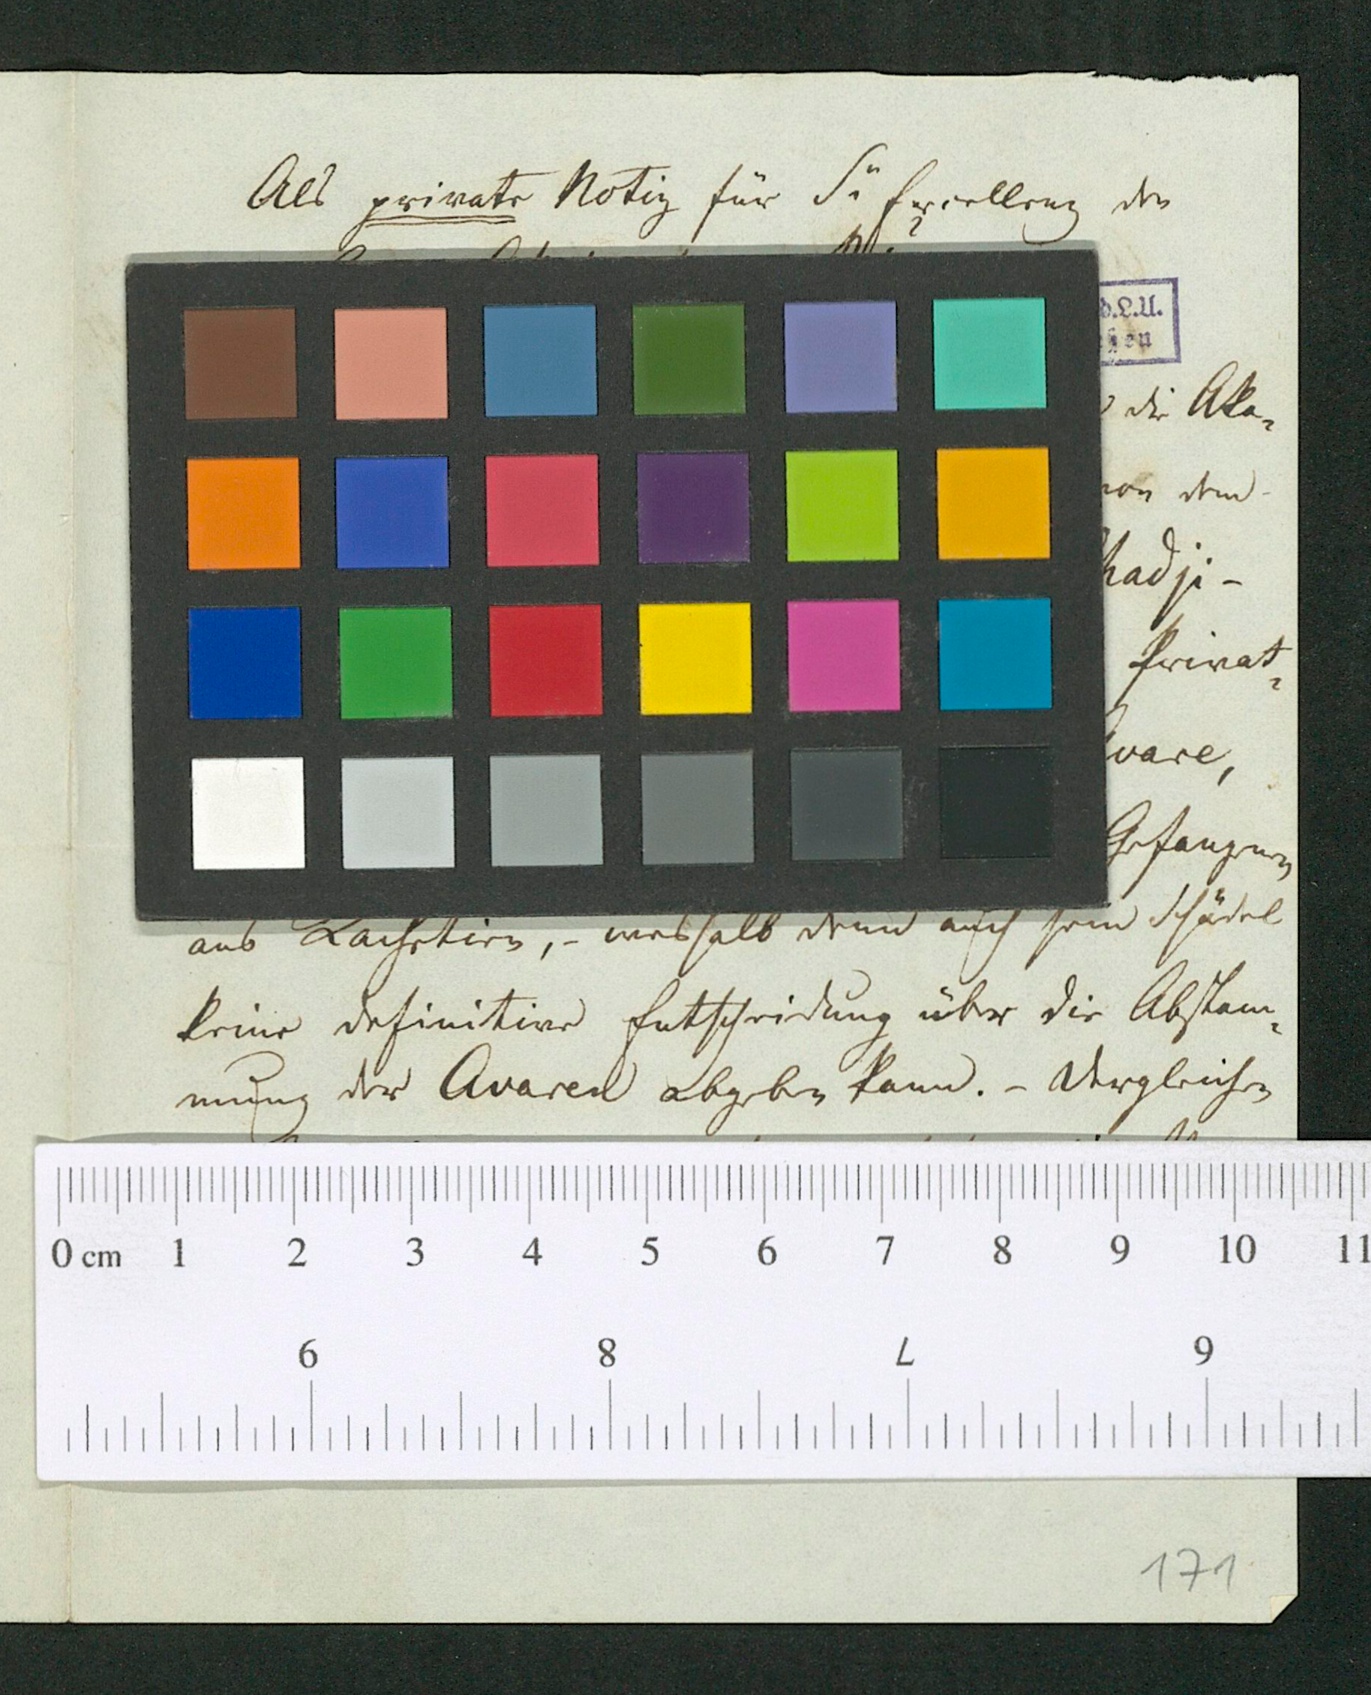 Als private Notiz für Se Excellenz den
d.L.U.
chen
die Aka-
von dem
hadji-
Privat-
vare,
Gefangenen
aus Lachetien, - weshalb denn auch sein Schädel
keine definitive Entscheidung über die Abstam-
mung der Avaren abgeben kann. - Vergleichen
0 cm 1 2 3 4 5 6 7 8 9 10 11
9 8 7 6
171